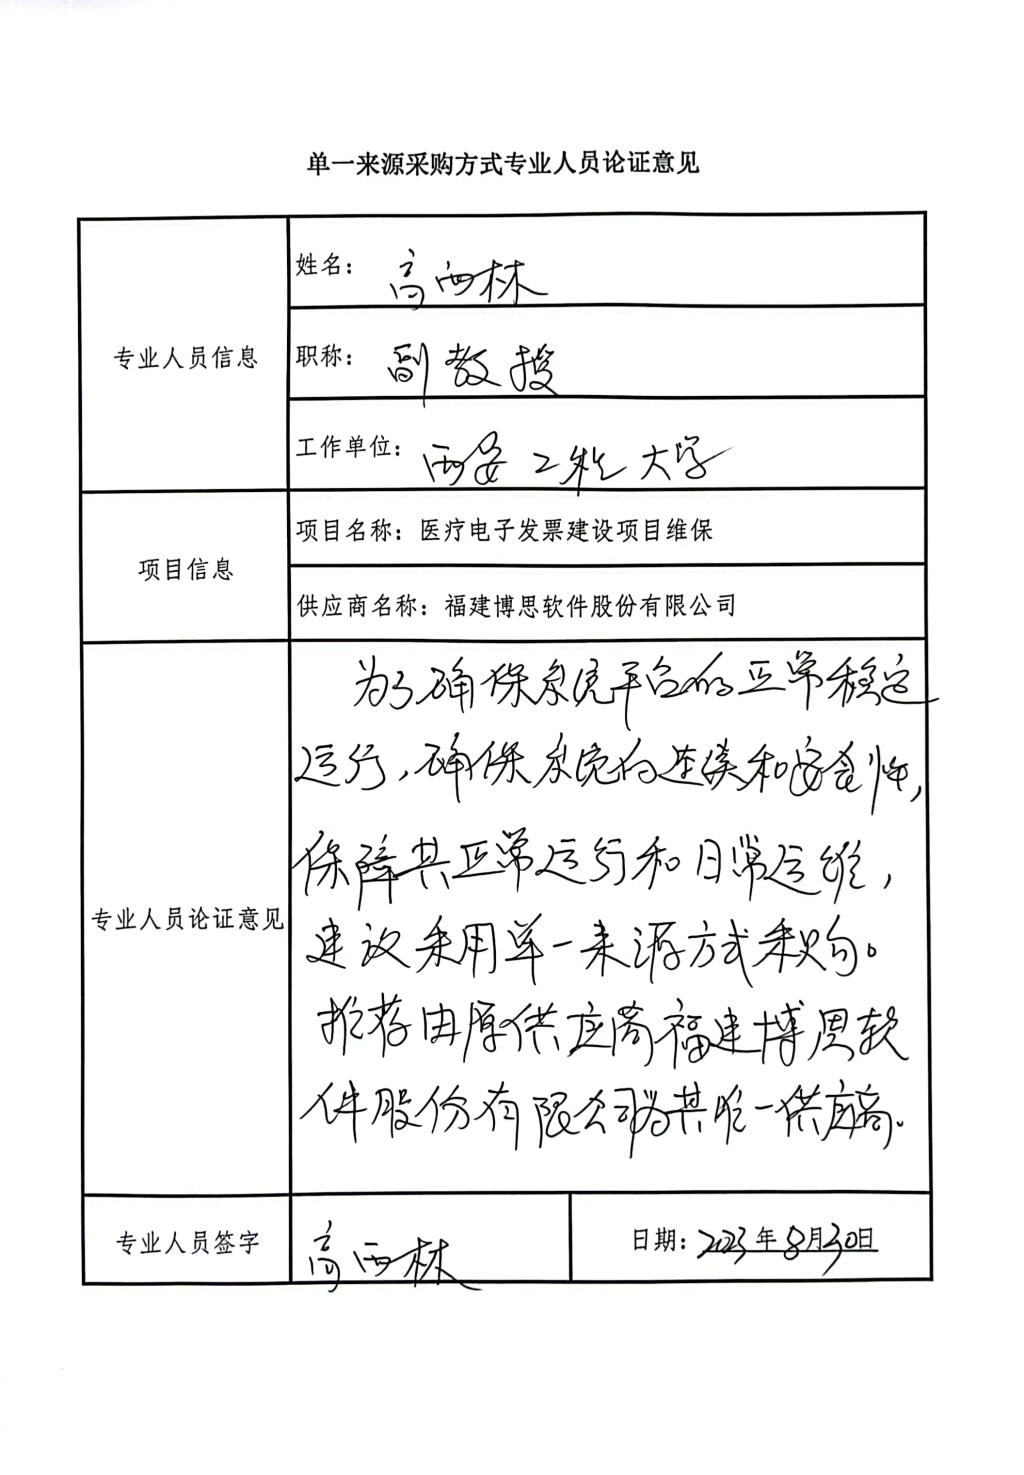 单一来源采购方式专业人员论证意见
专业人员信息
姓名：高西林
职称：副教授
工作单位：西安工程大学
项目信息
项目名称：医疗电子发票建设项目维保
供应商名称：福建博思软件股份有限公司
专业人员论证意见
为了确保系统平台的正常稳定
运行，确保系统的连续和安全性，
保障其正常运行和日常运维，
建议采用单一来源方式采购。
推荐由原供应商福建博思软
件股份有限公司为其唯一供应商。
专业人员签字
高西林
日期：2023年8月30日